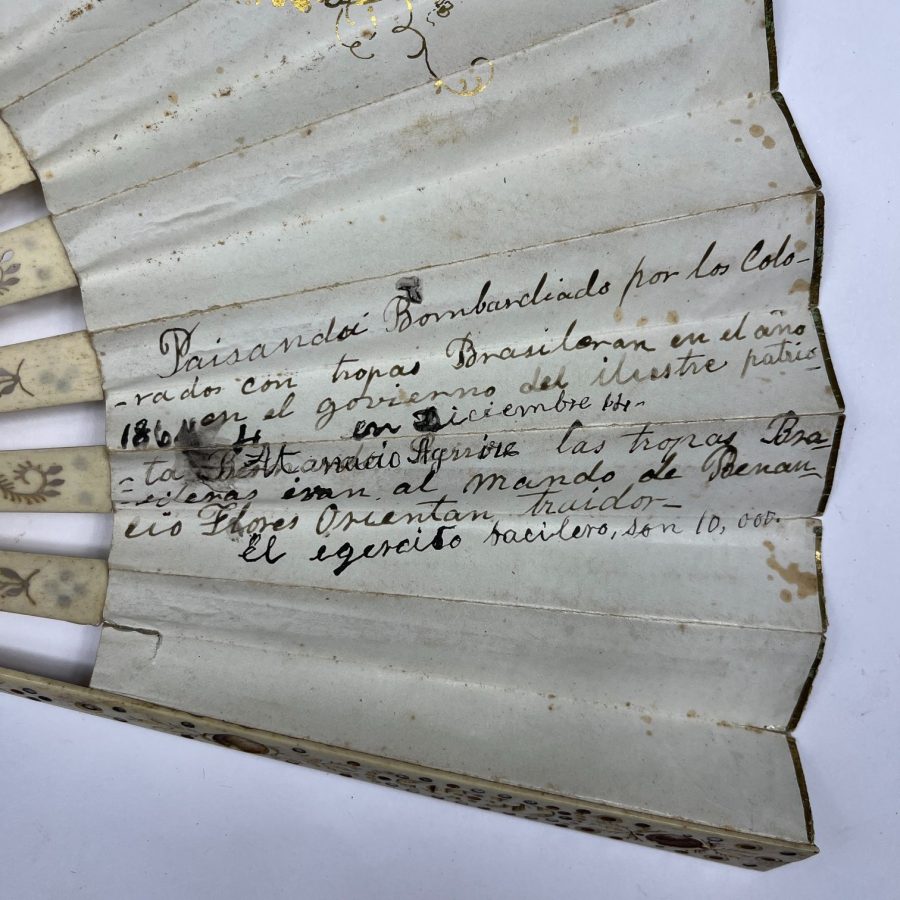 Paisandú Bombardiado por los Colo-
-rados con tropas Brasileran en el año
1864 en el govierno del ilustre patrio-
4 en Diciembre 14-
-ta Atanacio Agrirre las tropas Bra-
=sileras ivan al mando de Benan-
cio Flores Orientan traidor-
El egercito racilero, son 10,000.